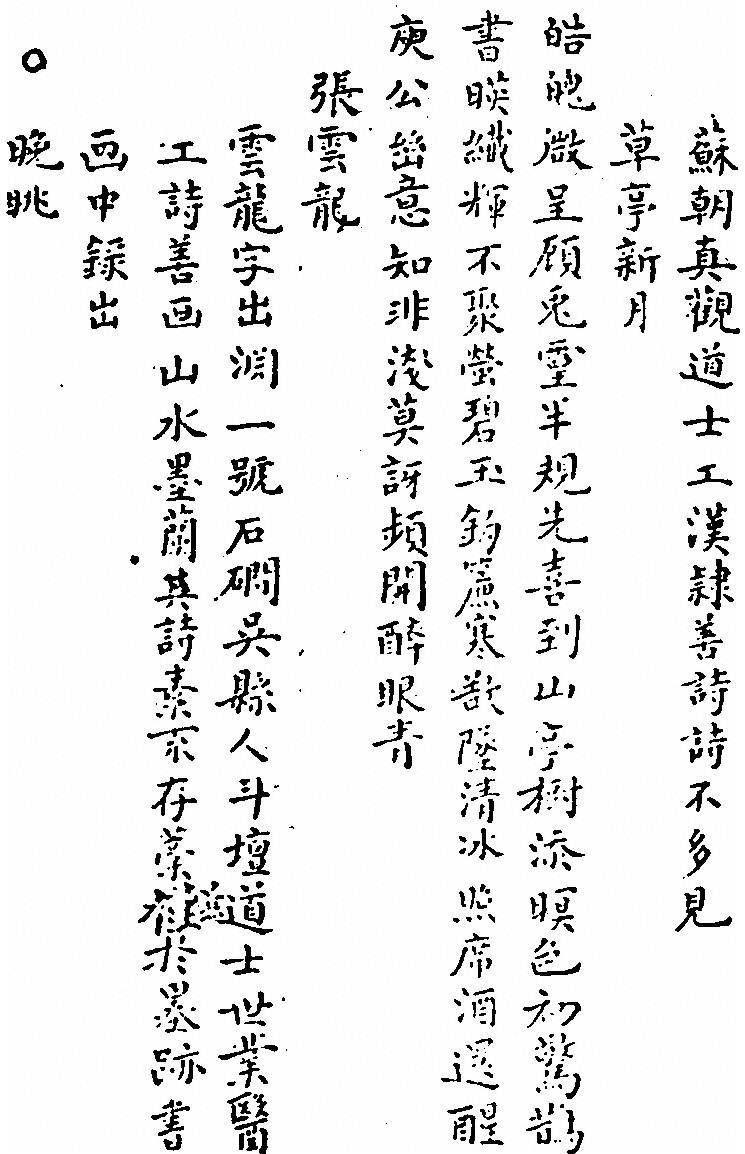 蘇朝真觀道士工漢隷善詩詩不多見
草亭新月
皓魄微呈顧兎霊半規先喜到山亭樹添暝色初驚鵲
書暎纖輝不聚螢碧玉鈎簾寒欲墜清冰照席酒還醒
庾公當意知非淺莫訝頻開醉眼青
張雲龍
雲龍字出淵一號石磵吳縣人斗壇道士世業醫
工詩善画山水墨蘭其詩素不存藁於墨跡書
画中錄出
晚眺